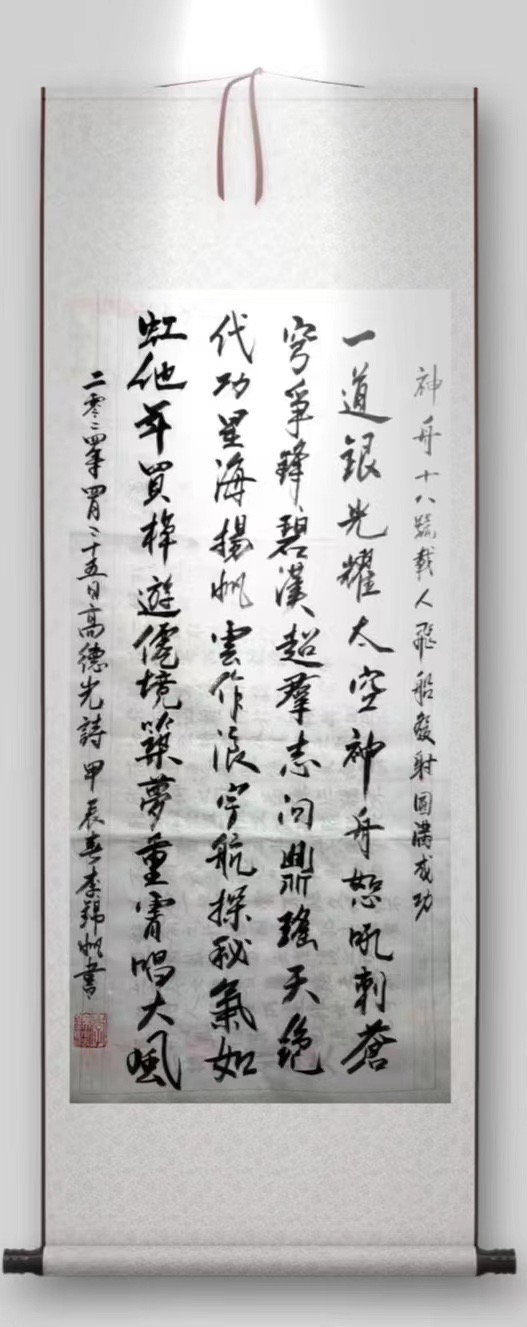 神舟十八號載人飛船發射圓滿成功
一道銀光耀太空神舟怒吼刺蒼
穹爭鋒碧漢超羣志問鼎瑤天絕
代功星海揚帆雲作浪宇航探秘氣如
虹他年買棹遊僊境築夢重霄唱大風
二零二四年四月二十五日高德光詩甲辰春李錦帆書